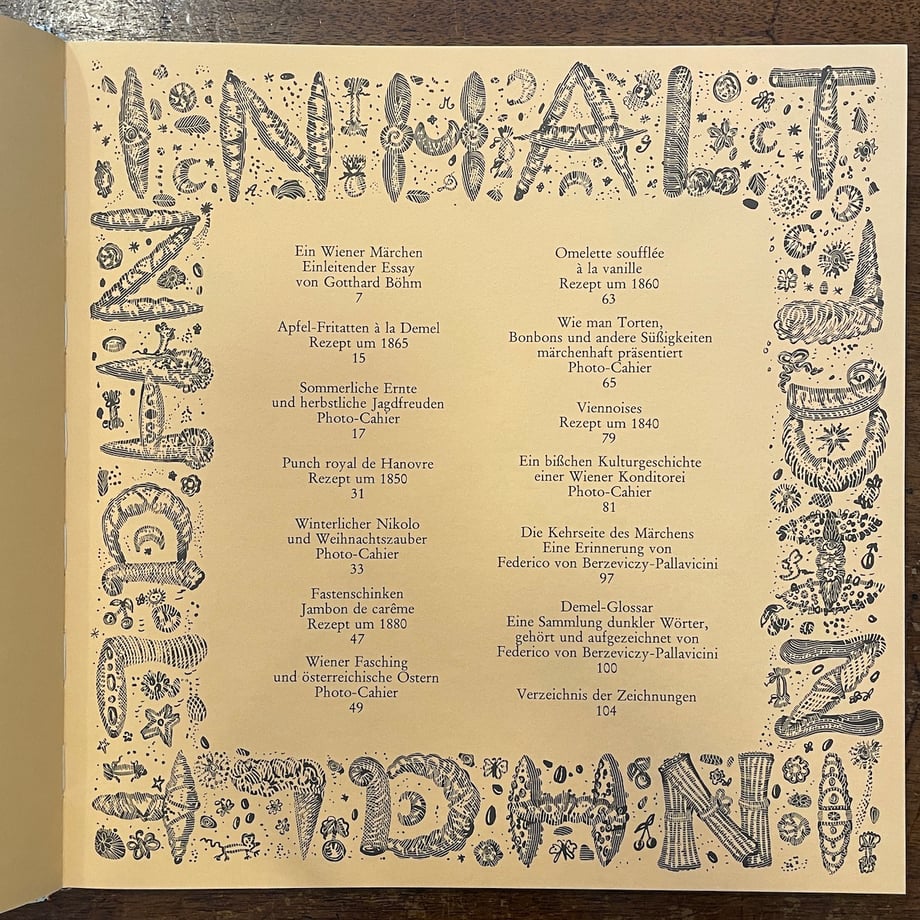 INHALT
Ein Wiener Märchen
Einleitender Essay
von Gotthard Böhm
7
Apfel-Fritatten à la Demel
Rezept um 1865
15
Sommerliche Ernte
und herbstliche Jagdfreuden
Photo-Cahier
17
Punch royal de Hanovre
Rezept um 1850
31
Winterlicher Nikolo
und Weihnachtszauber
Photo-Cahier
33
Fastenschinken
Jambon de carême
Rezept um 1880
47
Wiener Fasching
und österreichische Ostern
Photo-Cahier
49
Omelette soufflée
à la vanille
Rezept um 1860
63
Wie man Torten,
Bonbons und andere Süßigkeiten
märchenhaft präsentiert
Photo-Cahier
65
Viennoises
Rezept um 1840
79
Ein bißchen Kulturgeschichte
einer Wiener Konditorei
Photo-Cahier
81
Die Kehrseite des Märchens
Eine Erinnerung von
Federico von Berzeviczy-Pallavicini
97
Demel-Glossar
Eine Sammlung dunkler Wörter,
gehört und aufgezeichnet von
Federico von Berzeviczy-Pallavicini
100
Verzeichnis der Zeichnungen
104
INHALT
INHALT
INHALT